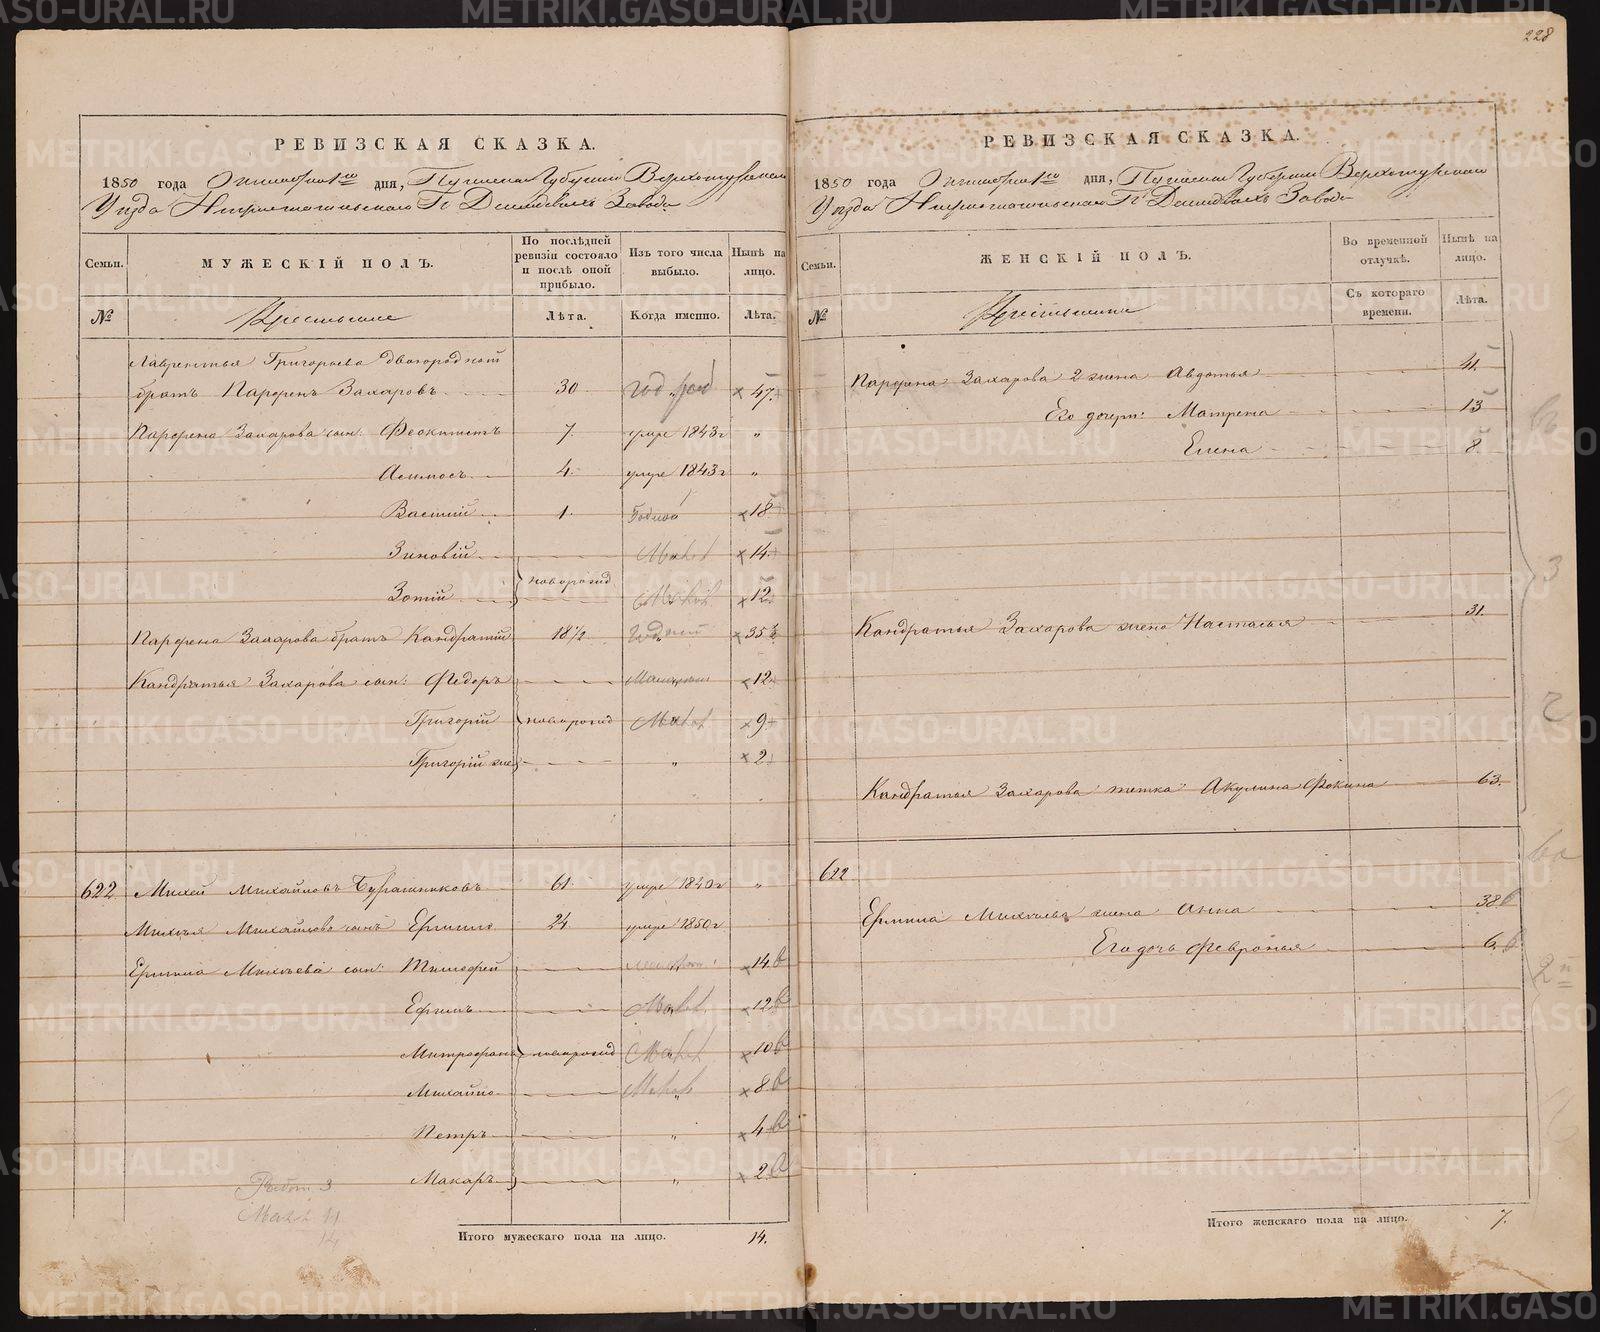 228
РЕВИЗСКАЯ СКАЗКА.
1850 года Октября 1го дня, Пермской Губернии Верхотурскаго
Уѣзда Нижнетагильскаго Гг Демидовыхъ Завода
Семьи.
МУЖЕСКІЙ ПОЛЪ.
По послѣдней ревизіи состояло и послѣ оной прибыло.
Изъ того числа выбыло.
Нынѣ на лицо.
№
Крестьяне
Лѣта.
Когда именно.
Лѣта.
Лаврентья Григорьева двоюродной
братъ Парфенъ Захаровъ 30 год × 47.
Парфена Захарова сын: Феоктистъ 7. умре 1843г "
4. умре 1843г "
Василій 1. Годной × 18
Зиновій Мал × 14
Зотій новорожд Мал × 12
Парфена Захарова братъ Кандратій 18½ Годной × 35½
Кандратья Захарова сын: Федоръ × 12
Григорій новорожд Мал × 9
Григорій же " × 2
622 Михей Михайловъ 61. умре 1840г "
Михѣя Михайлова сынъ Ермилъ 24 умре 1850г
Ермила Михѣева сын: Тимофей × 14
Ефимъ Мал × 12
Митрофанъ новорожд Мал × 10
Михайло Мал × 8
Петръ " × 4
Макаръ " × 2
3
Мал 11
14
Итого мужескаго пола на лицо. 14.
РЕВИЗСКАЯ СКАЗКА.
1850 года Октября 1го дня, Пермской Губернии Верхотурскаго
Уѣзда Нижнетагильскаго Гг Демидовыхъ Завода
Семьи.
ЖЕНСКІЙ ПОЛЪ.
Во временной отлучкѣ.
Нынѣ на лицо.
№
Крестьянки
Съ котораго времени.
Лѣта.
Парфена Захарова 2 жена Авдотья 41.
Его дочери: Матрена 13
Елена 8.
Кандратья Захарова жена Настасья 31.
Кандратья Захарова тетка Акулина Фокина 63.
622
Ермила Михѣева жена Анна 38
Его дочь Февронья 6.
Итого женскаго пола на лицо. 7.
3
2
2
METRIKI.GASO-URAL.RU